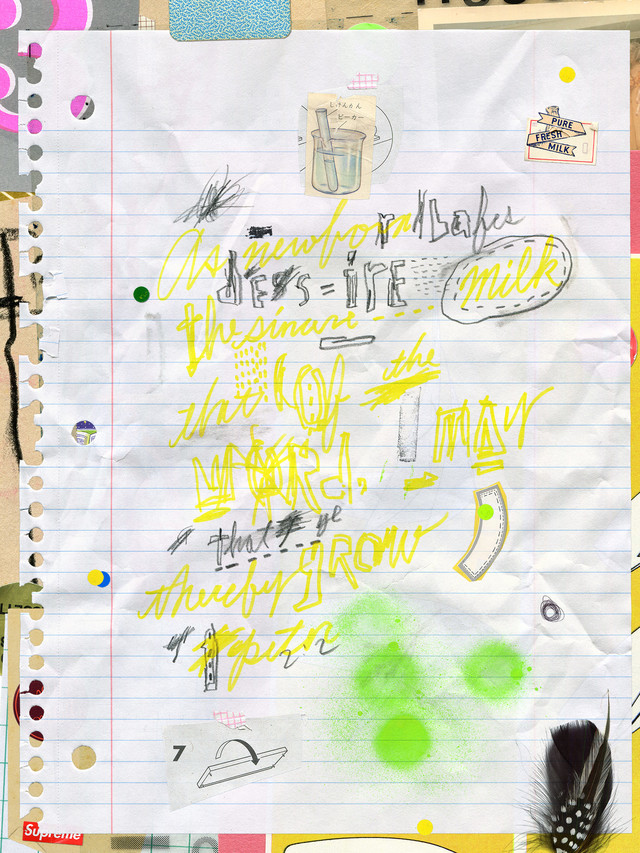 しけんかん
ビーカー
PURE
FRESH
MILK
As newborn babes
des=ire milk
the sincere
that of the
WORD, MAY
that ye
thereby GROW
2,2
7
Supreme